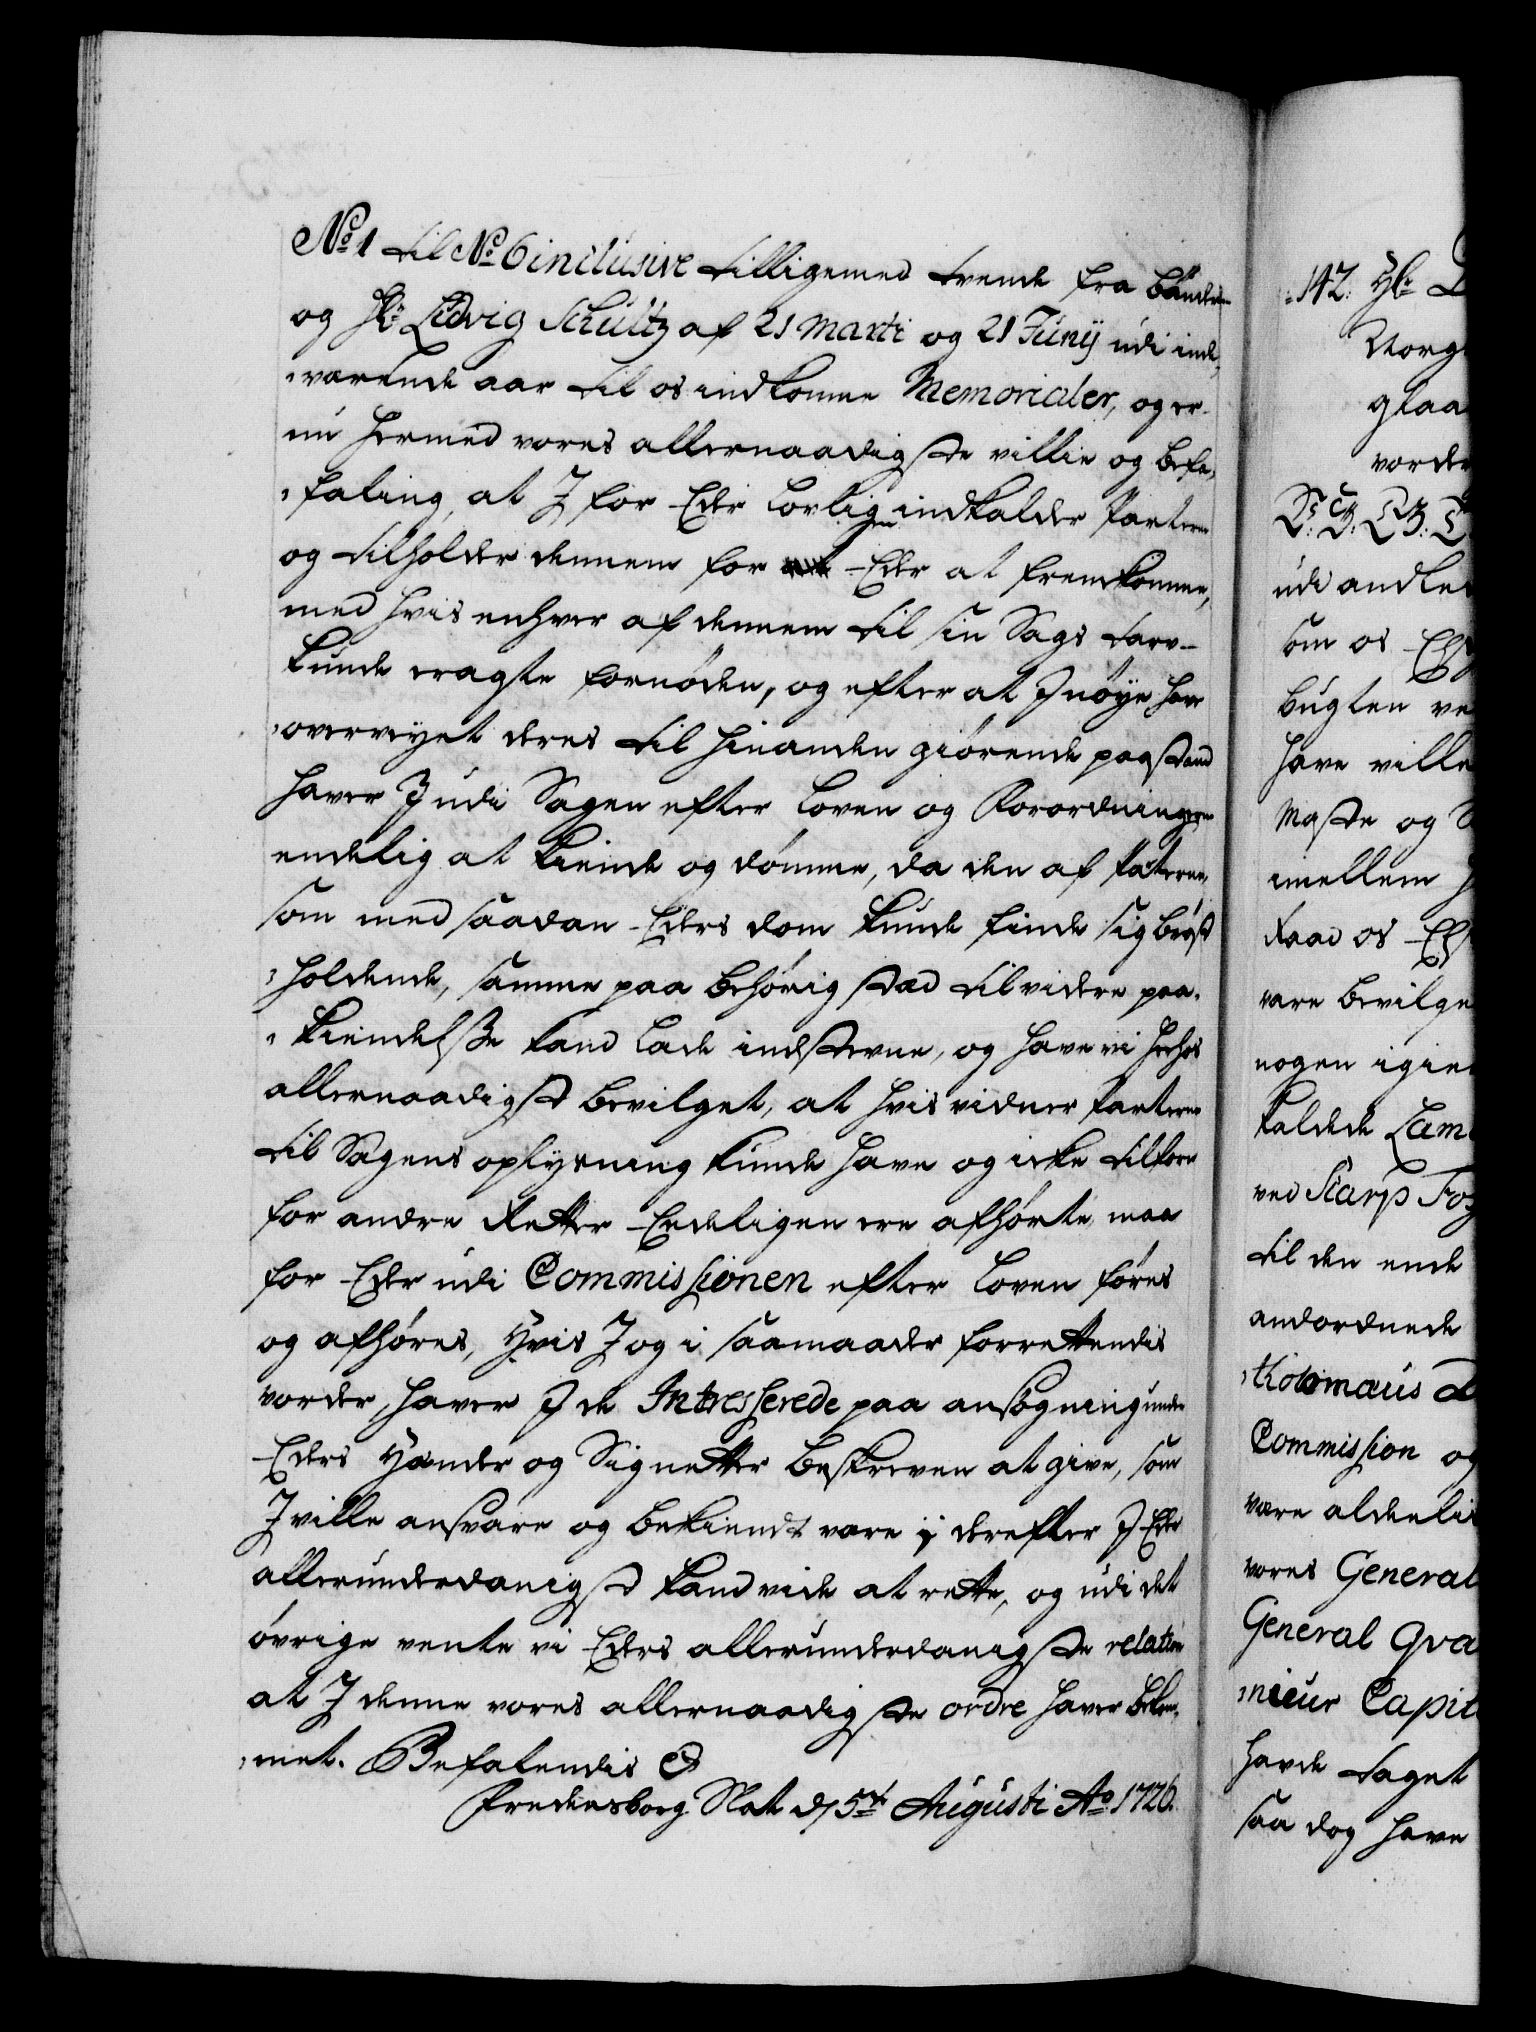 No 1 til No 6 inclusive tilligemed tvende fra bønderne
og Hr: Ludvig Schultz af 21 Marti og 21 Junij udi inde¬
„værende aar til os indkomne Memorialer, og er
nu hermed vores allernaadigste villie og befa¬
„faling, at I for Eder lovligen indkalder Parterne
og tilholder dennem for Eder at fremkomme,
med hvis enhver af dennem til sin Sags tarv
kunde eragte fornøden, og efter at I nøye har
„overveyet deres til hinanden giørende paastand
haver I udi Sagen efter Loven og Forordningerne
endelig at kiende og dømme, da den af Paterne,
som med saadan Eders dom kunde finde sig brøst
„holdende, samme paa behørig stæd til videre paa¬
„kiendelsse kand lade indstevne, og have vi herhos
allernaadigst bevilget, at hvis vidner Parterne
til Sagens oplysning kunde have og icke tilforn
for andre Retter Eedeligen ere afhørte, maa
for Eder udi Commissionen efter Loven føres
og afhøres, Hvis I og i saamaader forrettendis
vorder, haver I de Intresserede paa ansøgning under
Eders Hænder og Signetter beskreven at give, som
I ville ansvare og bekiendt være; derefter I Eder
allerunderdanigst kand vide at rette, og udi det
øvrige vente vi Eders allerunderdanigste relation
at I denne vores allernaadigste ordre haver bekom¬
„met. Befalendis &
Fredensborg Slot d 5te Augusti Ao 1726.
142. Hr
Norg
glaa
vorde
udi andle
som os
bugten ve
have ville
Maste og
imellem
Raad os
være bevilge
nogen igie
kaldede Lam
ved Skarp
til den ende
anordnede
„tholomæus
Commission og
være aldeeli
vores General
General Qva
„nieur Capit
havde taget
saa dog have